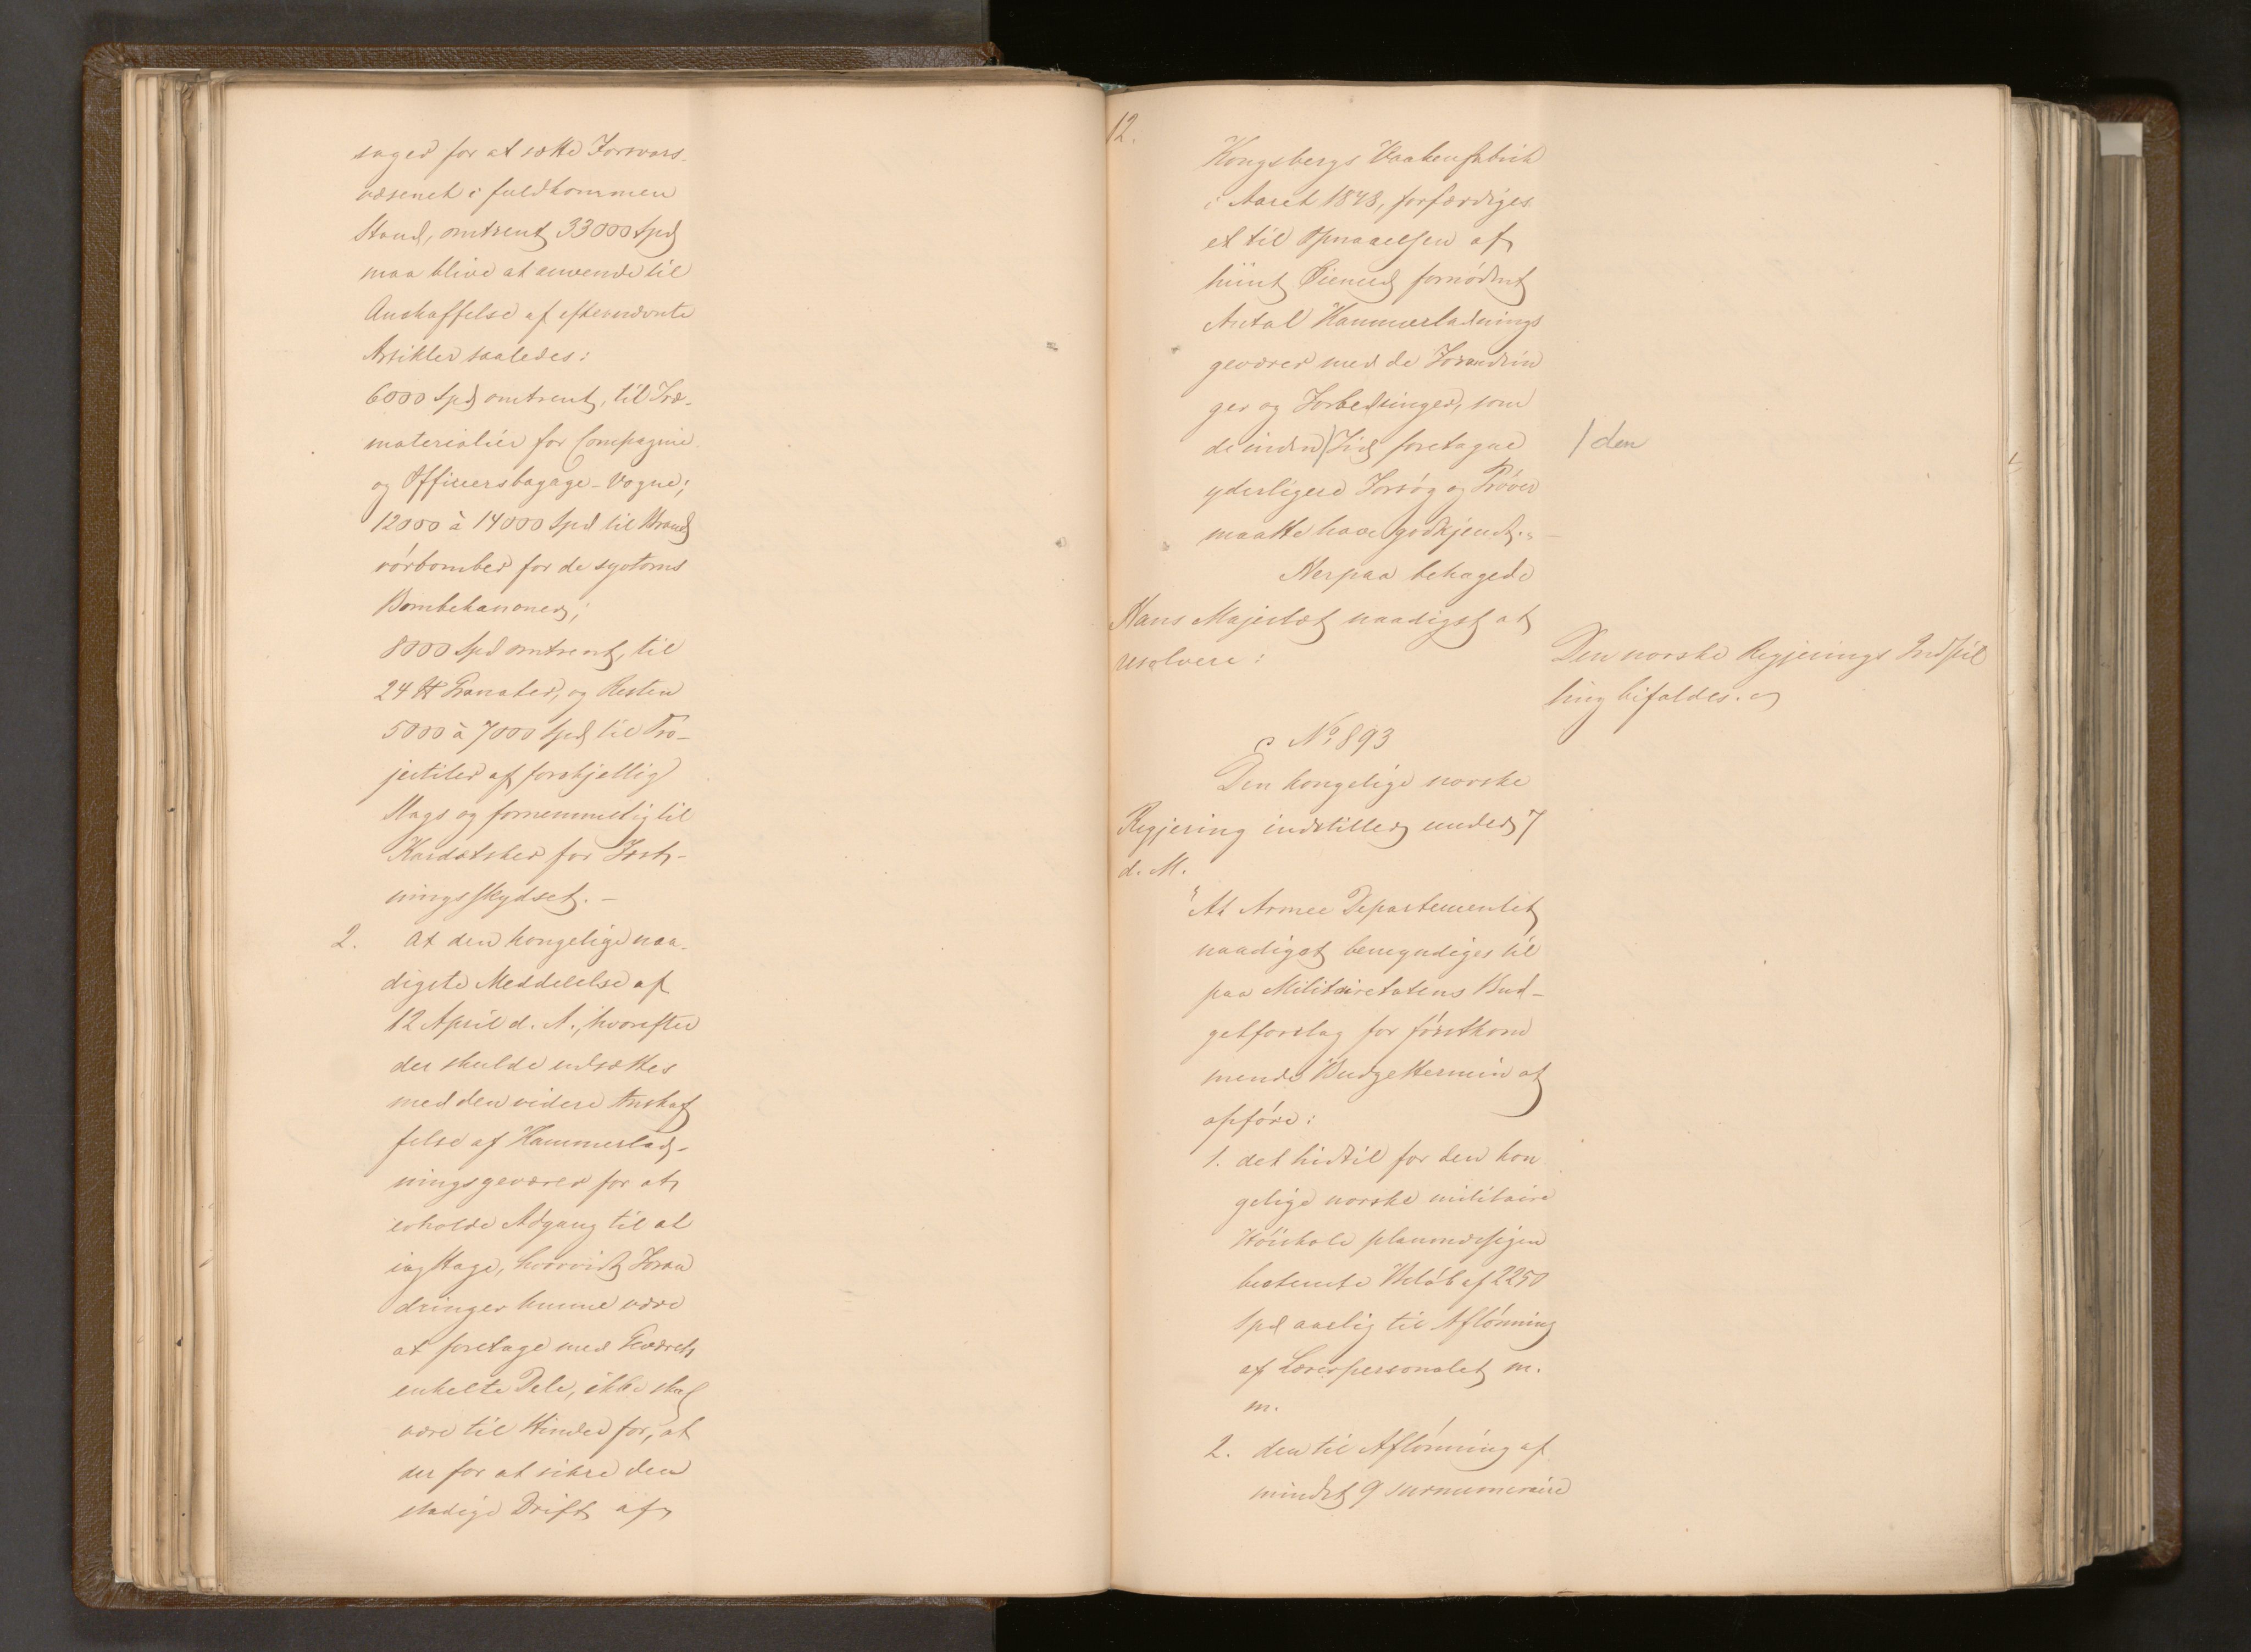 sager for at sætte Forsvars-
væsenet i fuldkommen
Stand, omtrent 33000 Spd
maa blive at anvende til
Anskaffelse af eftervnævnte
Artikler saaledes:
6000 Spd omtrent, til Træ-
materialier for Compagnie
og Officiersbagage-Vogne;
12000 à 14000 Spd til Brand
rörbomber for de
Bombekanoner;
8000 Spd omtrent, til
24 ℔ Granater, og Resten
5000 à 7000 Spd til Pro-
jectiler af forskjellig
Slags og fornemmelig til
Kardætsker for Fæst-
ningsskydset. -
2. At den kongelige naa-
digste Meddelelse af
12 April d. A., hvorefter
der skulde indsættes
med den videre Anskaf
felse af Kammerlad-
ningsgeværer for at
erholde Adgang til at
iagttage, hvorvidt Foran
dringer kunne være
at foretage med Geværets
enkelte Dele, ikke skal
være til Hinder for, at
der for at sikre den
stadige Drift af
12.
Kongsbergs Vaabenfabrik
i Aaret 1848, forfærdiges
et til Opnaaelsen af
hiint Öiemed fornödent
Antal Kammerladnings
geværer med de Forandrin
ger og Forbedringer, som
de inden / Tid foretagne
/ den
yderligere Forsög og Pröver
maatte have godkjendt." -
Herpaa behagede
Hans Majestæt naadigst at
resolvere:
Den norske Regjerings Indstil
ling bifaldes.
No 893
Den kongelige norske
Regjering indstiller under 7
d. M.
"At Armee Departementet
naadigst bemyndiges til
paa Militairetatens Bud-
getforslag for förstkom
mende Budgettermin at
opföre:
1. det hidtil for den kon
gelige norske militaire
Höiskole planmæssigen
bestemte Belöb af 2250
Spd aarlig til Aflönning
af Lærerpersonalet m.
m.
2. den til Aflönning af
mindst 9 surnumeraire